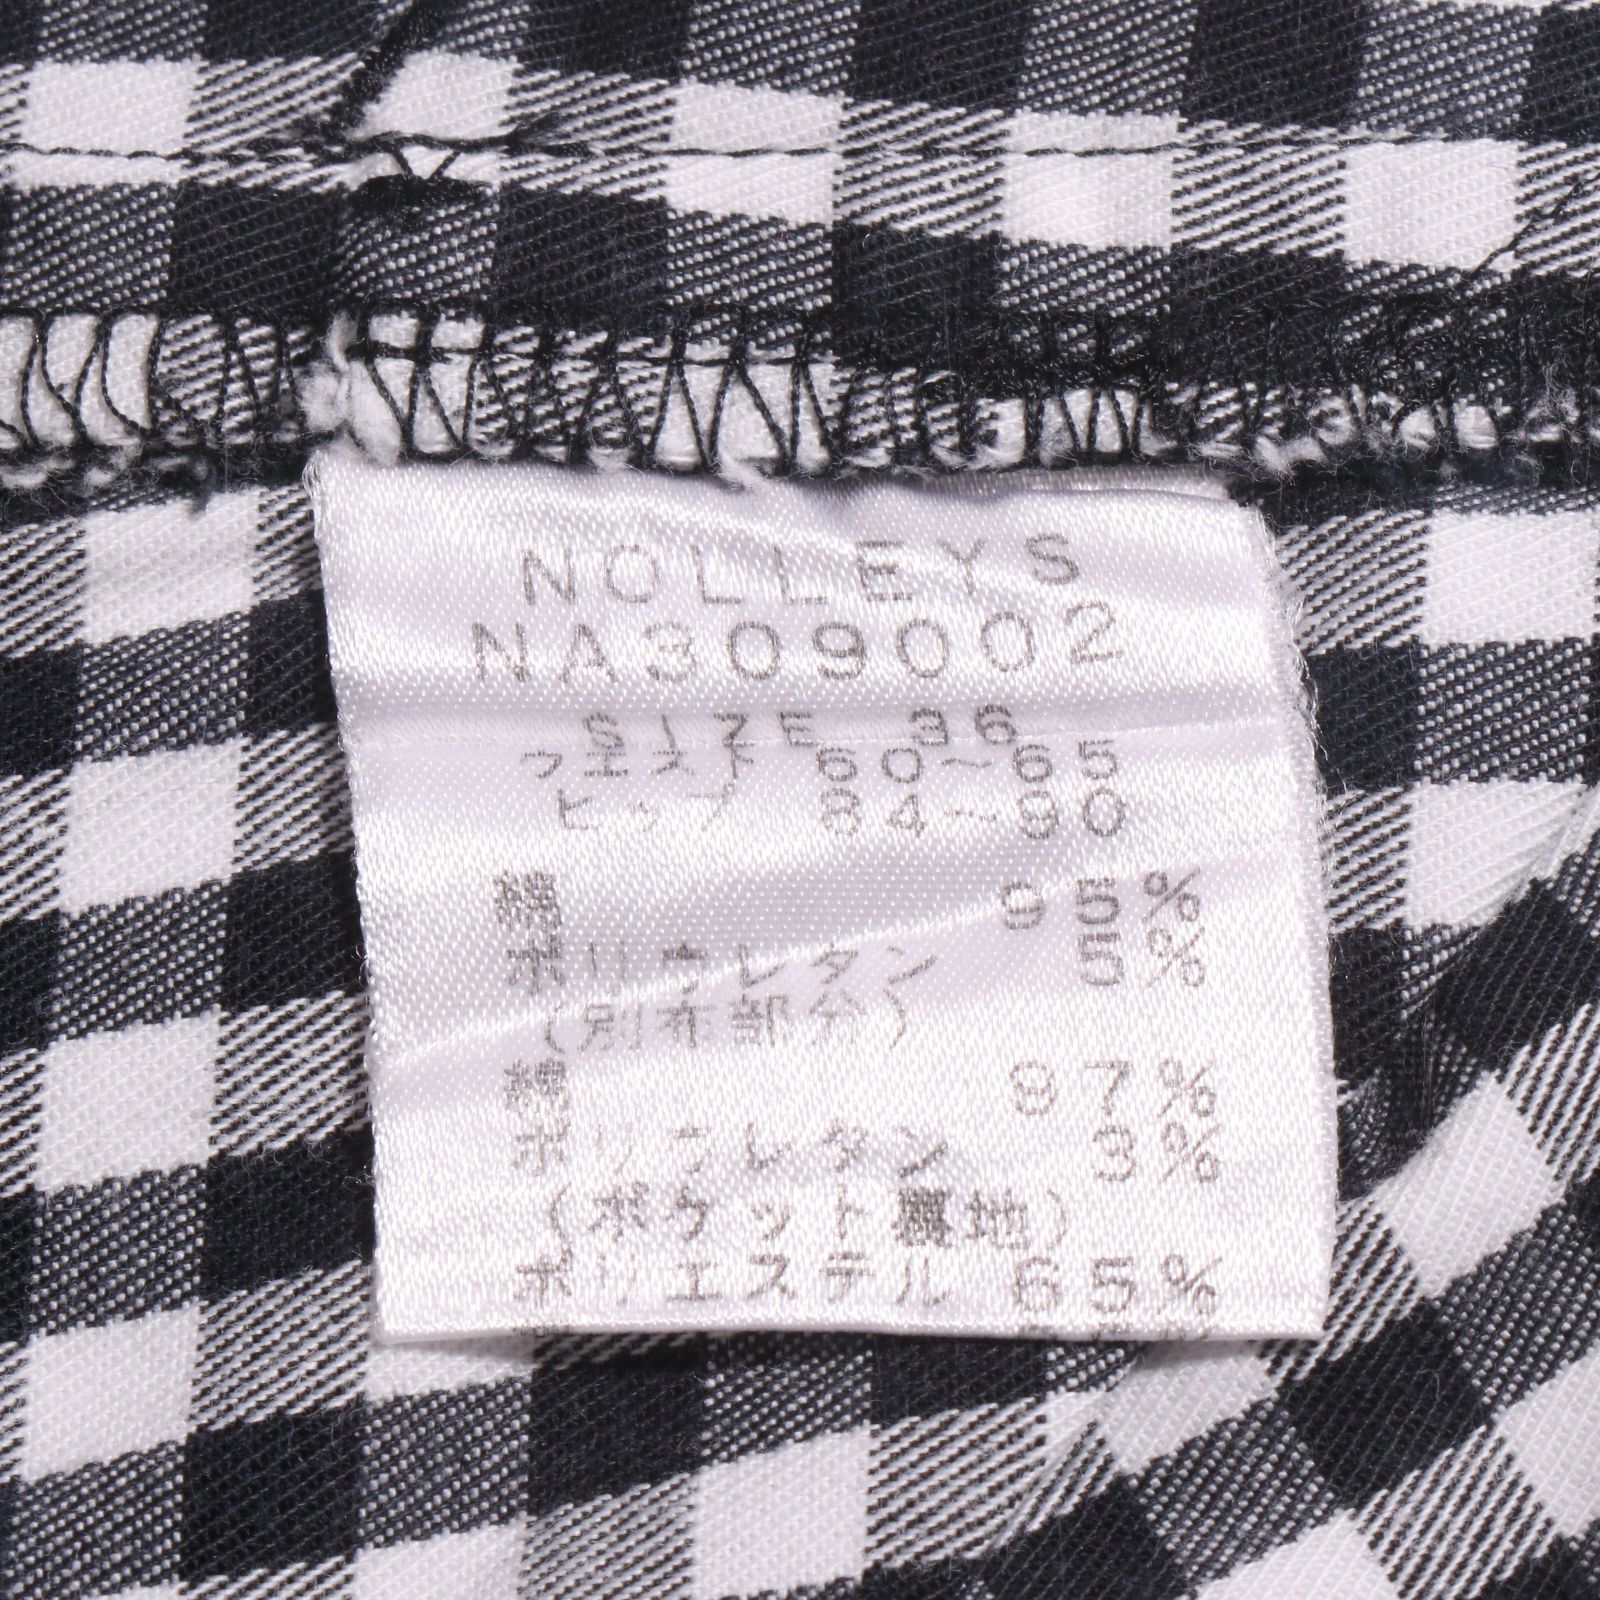 NOLLEYS
NA309002
SIZE 36
ウエスト 60~65
ヒップ 84~90
綿 95%
ポリウレタン 5%
(別布部分)
綿 97%
ポリウレタン 3%
(ポケット裏地)
ポリエステル 65%